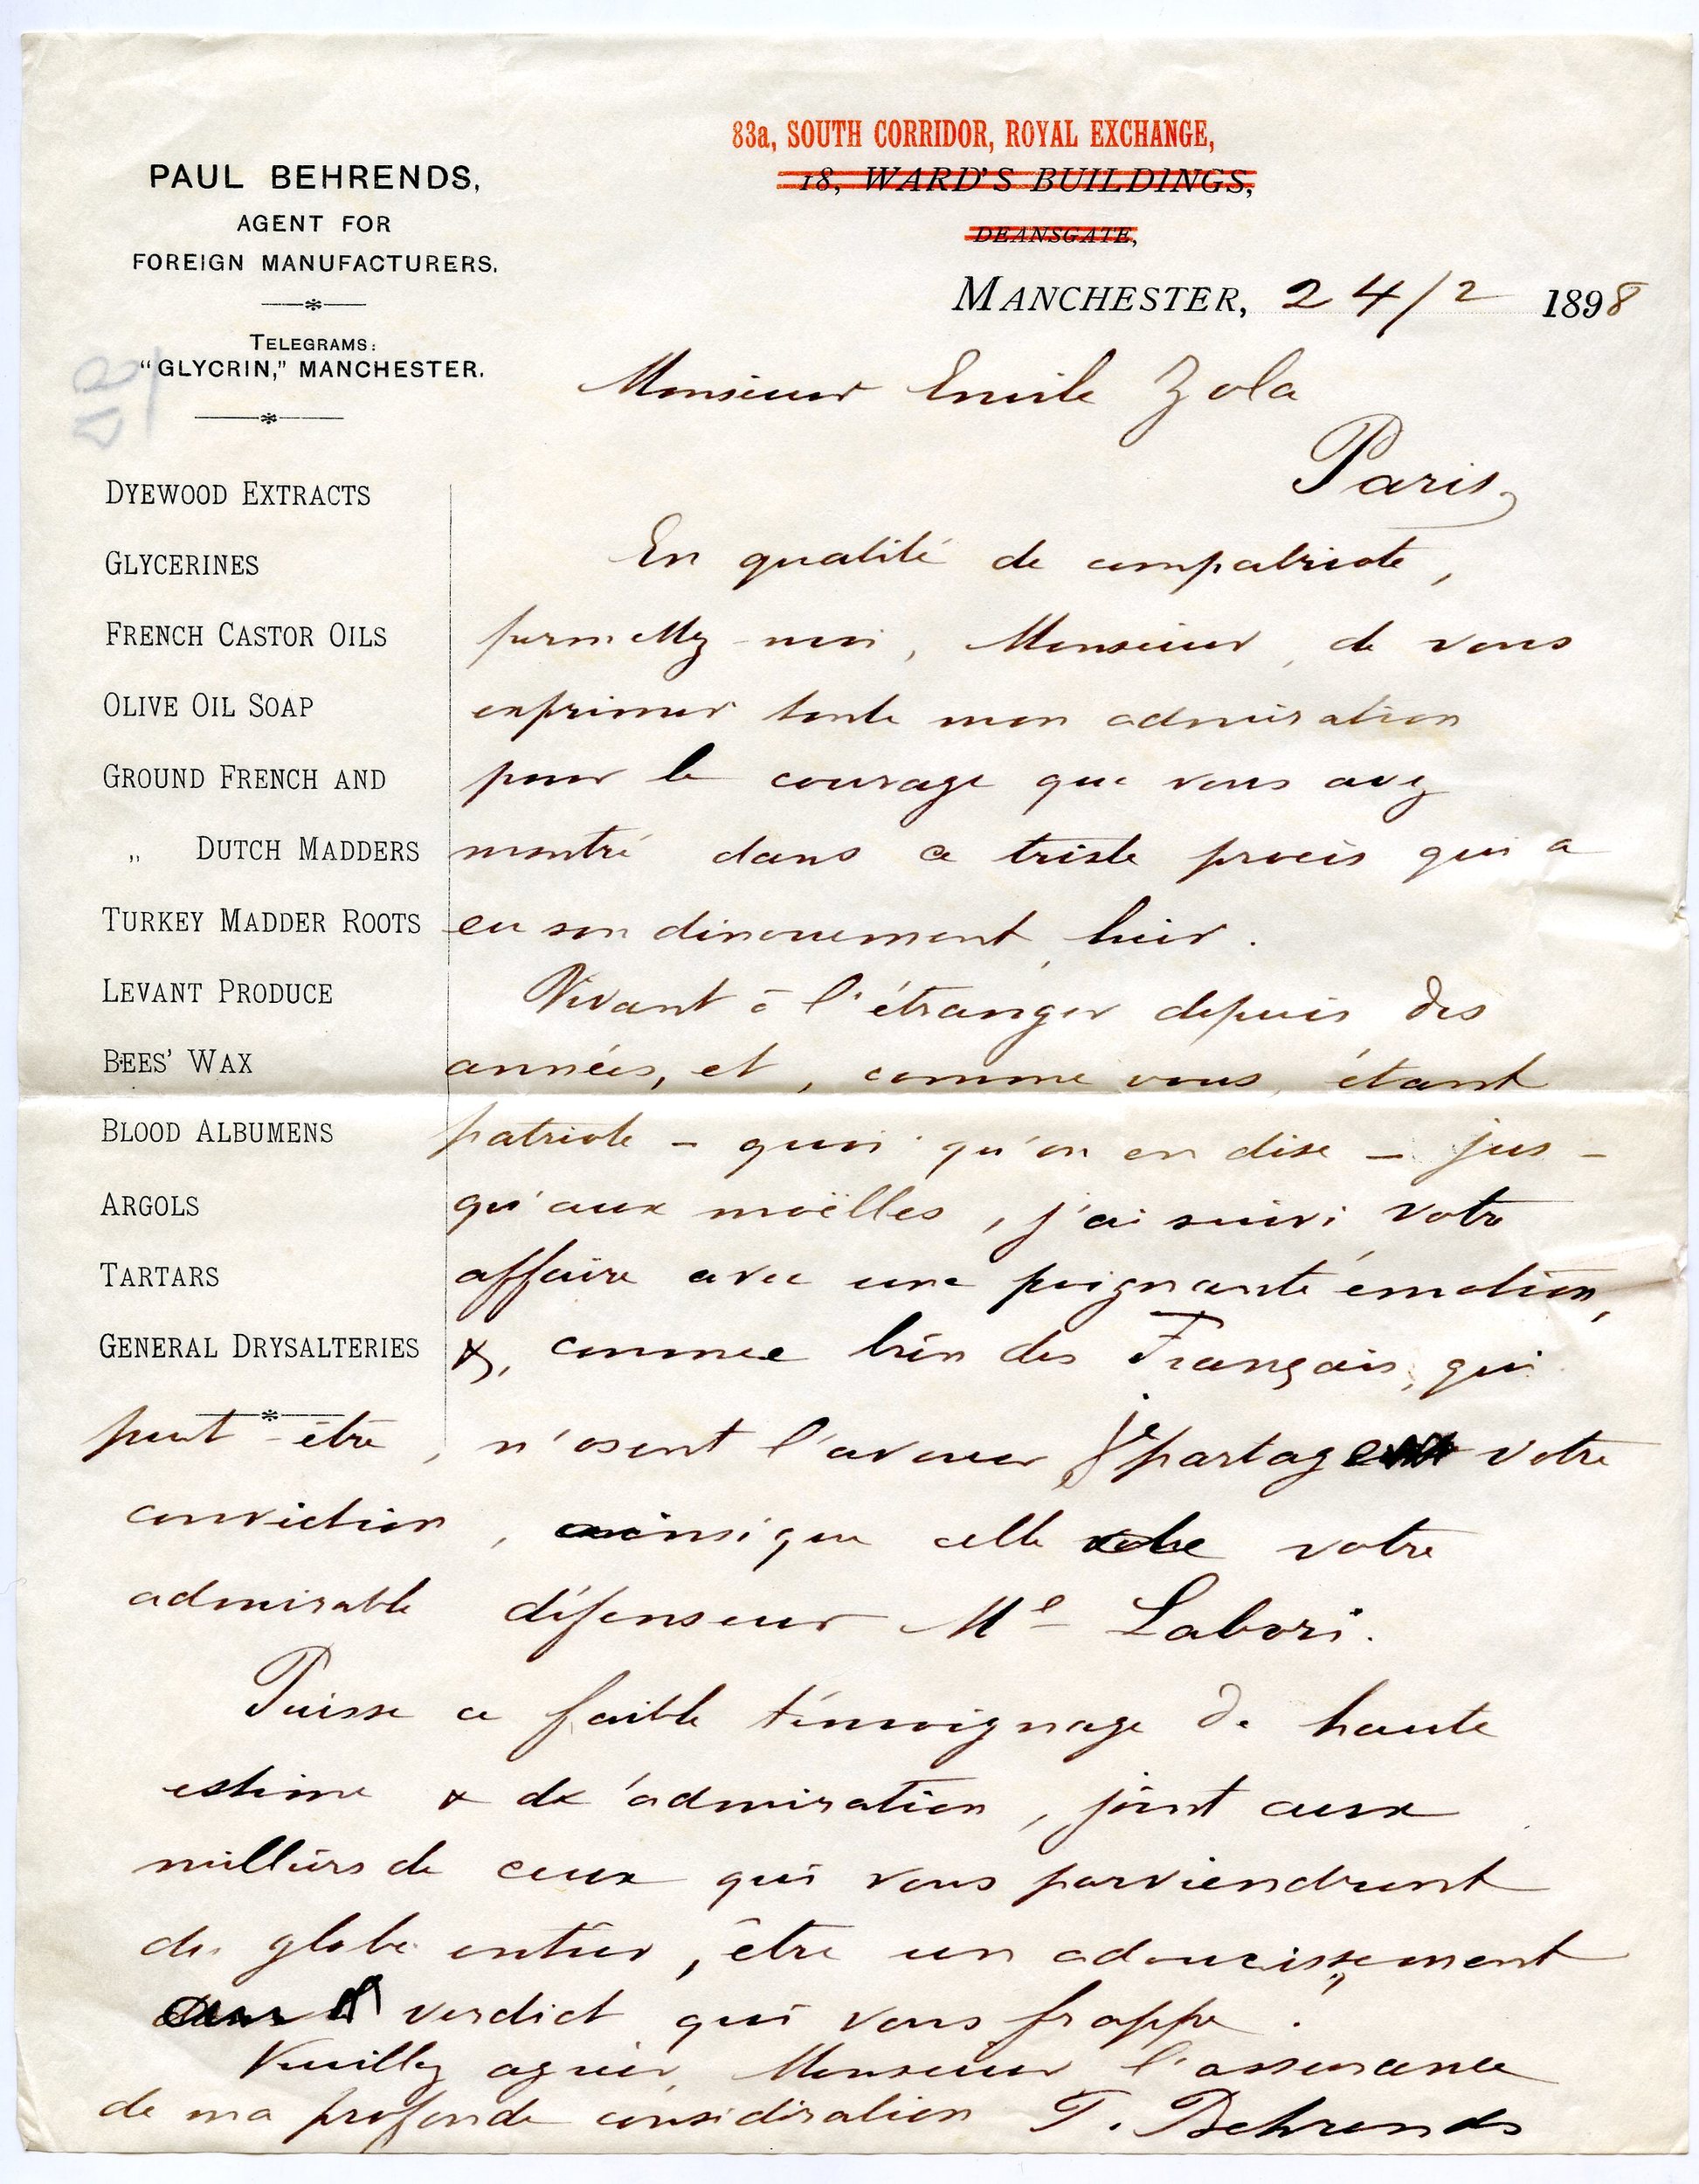 83a, SOUTH CORRIDOR, ROYAL EXCHANGE,
18, WARD'S BUILDINGS,
DEANSGATE,
MANCHESTER, 24/2 1898
PAUL BEHRENDS,
AGENT FOR
FOREIGN MANUFACTURERS.
TELEGRAMS:
"GLYCRIN," MANCHESTER.
DYEWOOD EXTRACTS
GLYCERINES
FRENCH CASTOR OILS
OLIVE OIL SOAP
GROUND FRENCH AND
„ DUTCH MADDERS
TURKEY MADDER ROOTS
LEVANT PRODUCE
BEES' WAX
BLOOD ALBUMENS
ARGOLS
TARTARS
GENERAL DRYSALTERIES
Monsieur Emile Zola
Paris,
En qualité de compatriote,
permettez-moi, Monsieur, de vous
exprimer toute mon admiration
pour le courage que vous avez
montré dans ce triste procès qui a
eu son dénouement, hier.
Vivant à l'étranger depuis des
années, et, comme vous, étant
patriote - quoi qu'on en dise - jus-
qu'aux moëlles, j'ai suivi votre
affaire avec une poignante émotion,
&, comme bien des Français, qui
peut-être, n'osent l'avouer je partage votre
conviction, ainsi que celle de votre
admirable défenseur Me Labori.
Puisse ce faible témoignage de haute
estime & d'admiration, joint aux
milliers de ceux qui vous parviendront
du globe entier, être un adoucissement
au verdict qui vous frappe.
Veuillez agréer, Monsieur l'assurance
de ma profonde considération P. Behrends